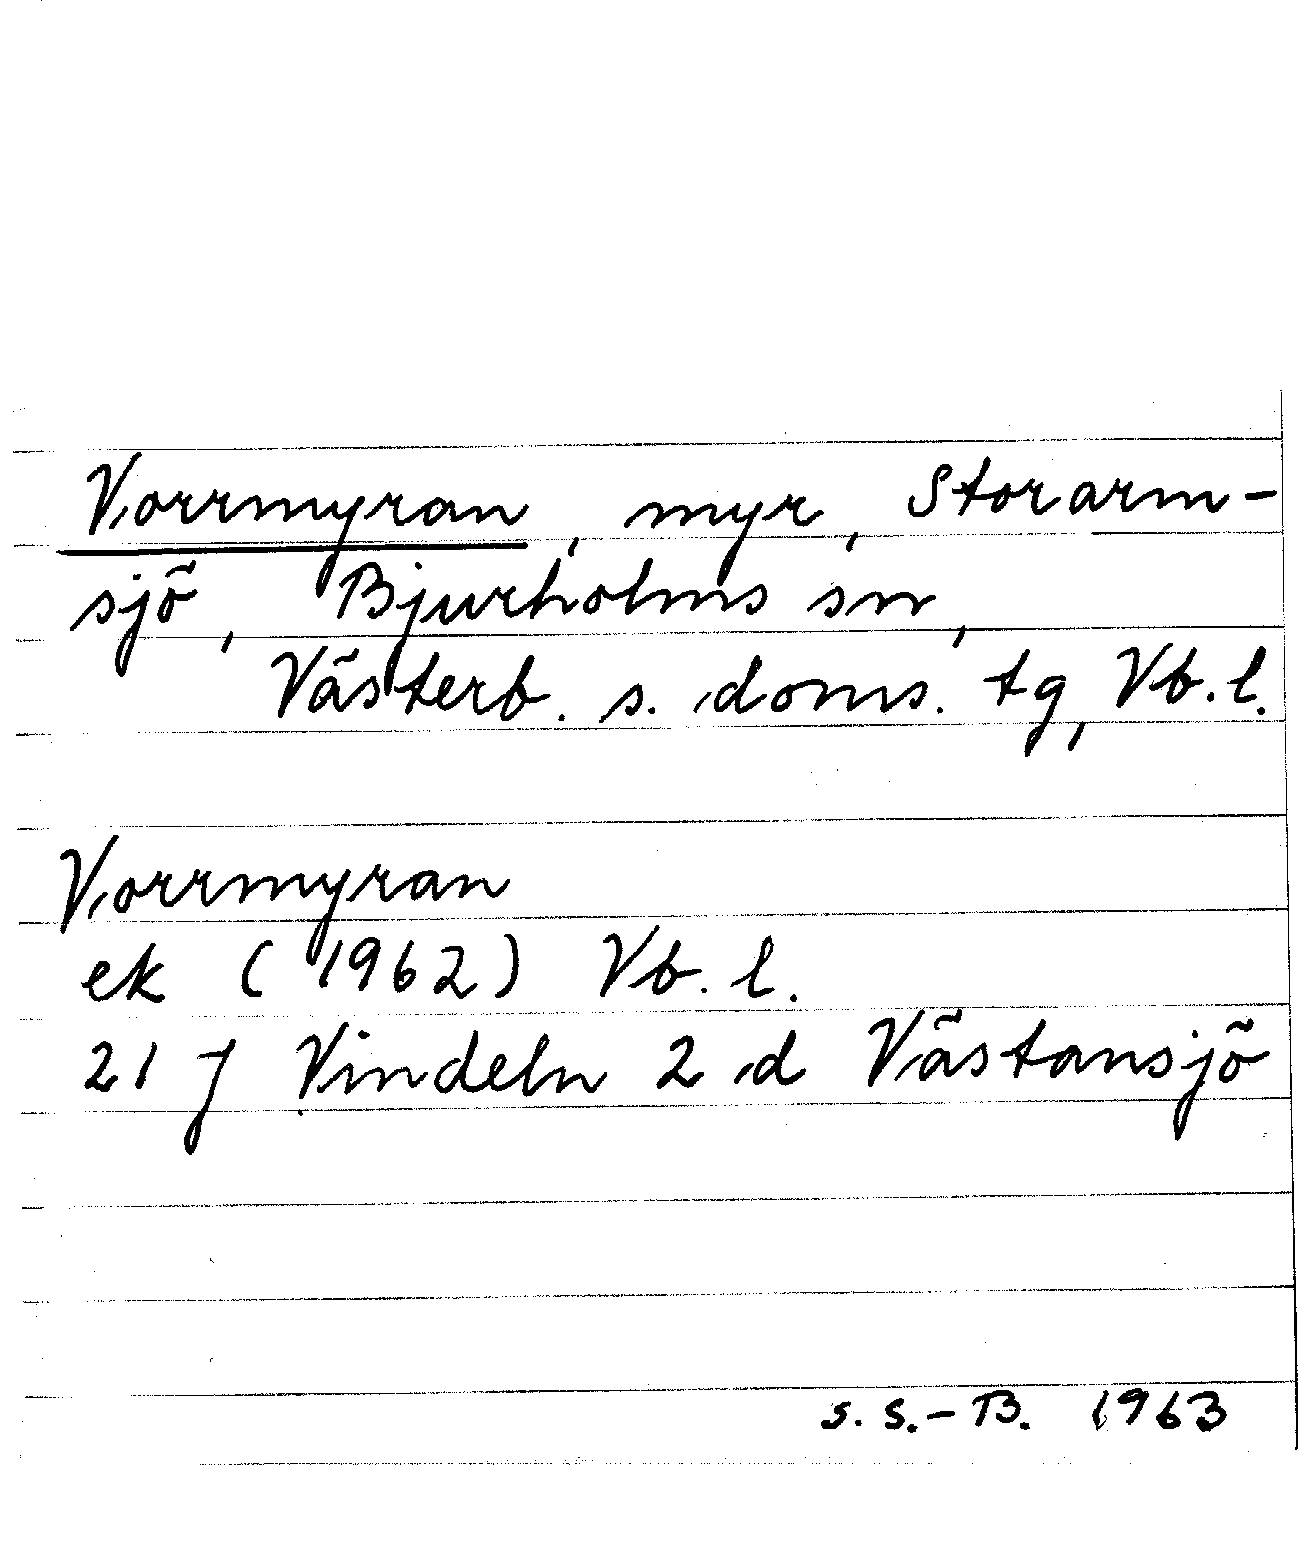 Vorrmyran, myr, Storarm-
sjö, Bjurholms sn,
Västerb. s. doms. tg, Vb. l.
Vorrmyran
ek (1962) Vb. l.
21 J Vindeln 2 d Västansjö
S. S.-B. 1963